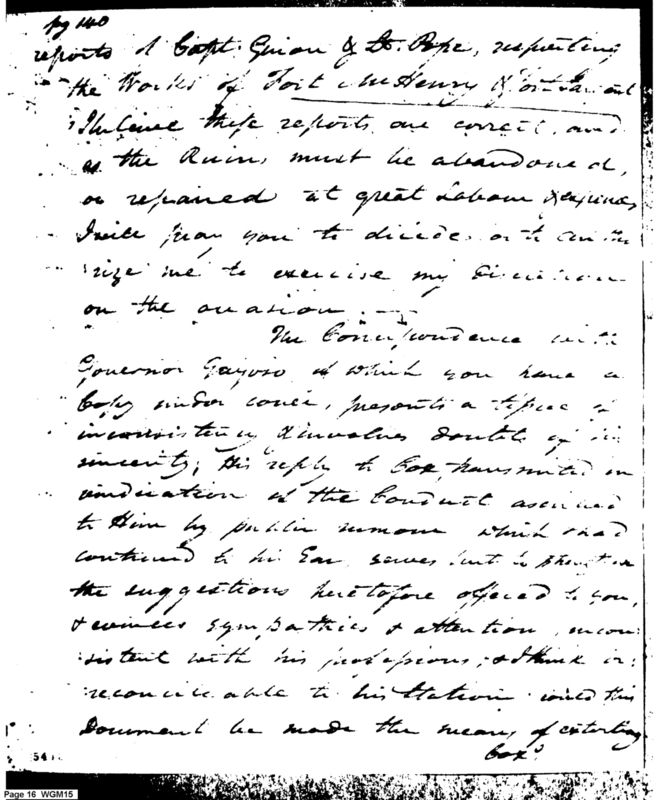 pg 140
reports of Capt. Guion & Lt. Pope, respecting
the Works of Fort McHenry &
I believe these reports are correct, and
as the Ruins must be abandoned,
or repaired at great Labour & expence,
I will pray you to decide or to autho
rize me to exercise my discretion
on the occasion.
The Correspondence with
Governor Gayoso of which you have a
Copy under cover, presents a tissue of
inconsistency & involves doubts of his
sincerity; His reply to Cox, transmitted in
vindication of the Conduct ascribed
to Him by public rumour which I had
to his Ear serves but to
the suggestions heretofore offered to you,
& evinces sympathies & attention, incon
sistent with his professions, & I think ir
reconcileable to his Station could this
Document be made the means of extorting
Cox's
54
Page 16 WGM15